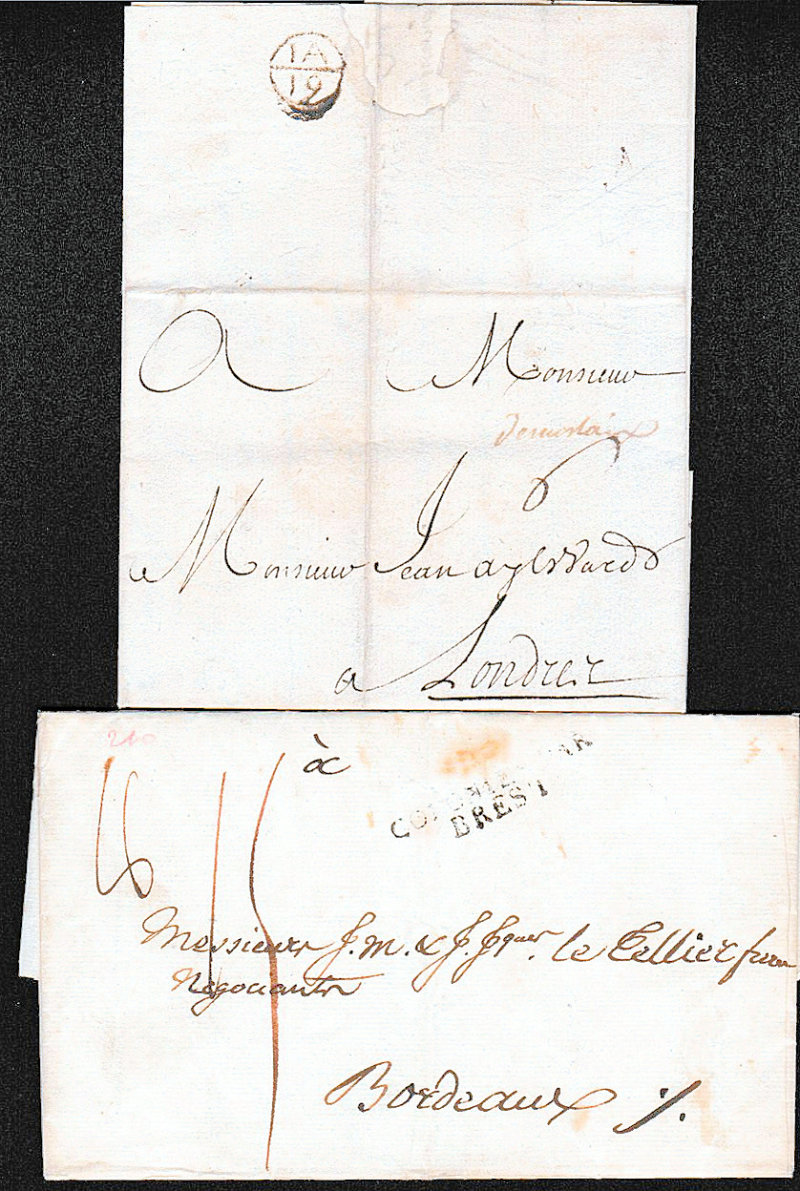 IA
19
A Monsieur
demorlaix
6
Monsieur Jean aylward
a Londres
210
à
COLONIES PAR
BREST
Messieurs J. M. & J. Jques. le Tellier freres
Negociants
Bordeaux ./.